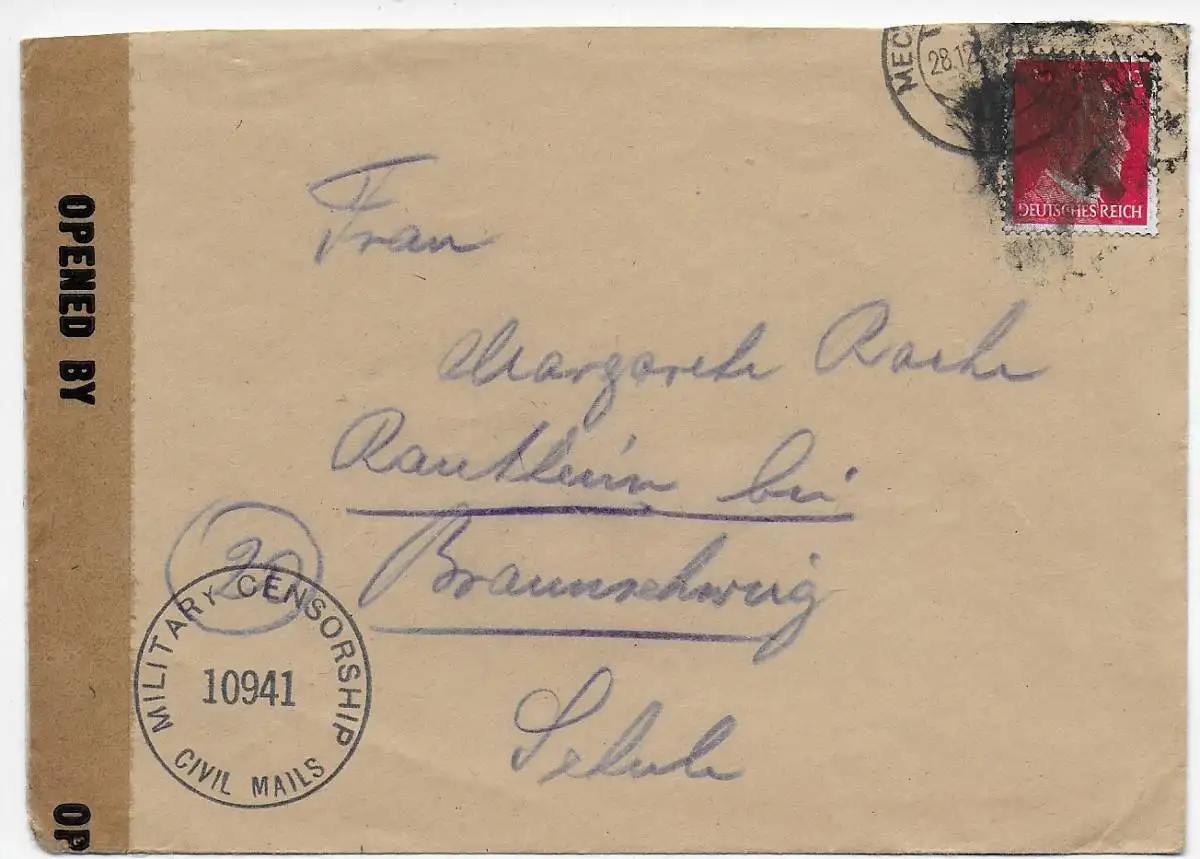 OPENED BY
OP
MEC
28.12
DEUTSCHES REICH
Frau
Margarete
Rautheim bei
Braunschweig
20
Schule
MILITARY CENSORSHIP
10941
CIVIL MAILS